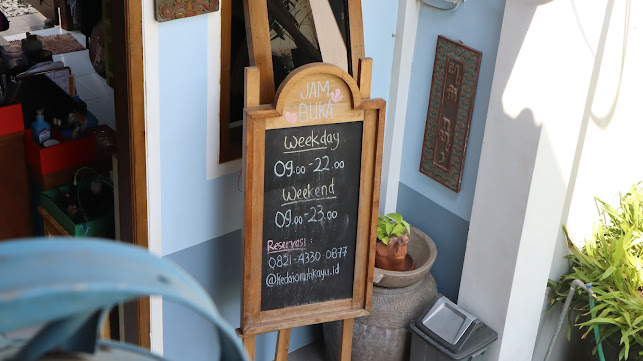 JAM
BUKA
Weekday
09.00 - 22.00
Weekend
09.00 - 23.00
Reservasi :
0821-4330-0877